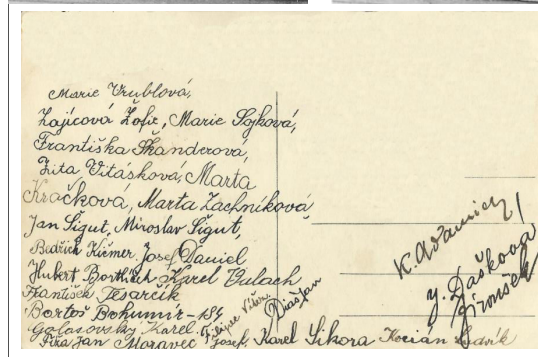 Marie Vrublová,
Zajícová Žofie, Marie Sojková,
Františka Škanderová,
Zita Vitásková, Marta
Kračková, Marta Zachníková
Jan Šigut, Miroslav Šigut,
Bedřich Kirner. Josef Daniel
Hubert Karel Valach
František Tesarčík
Bortoš Bohumír - 184
Golasovský Karel. Filipec Jan
Jan Moravec Josef, Karel Sikora Korián Ludvík
K. Adamicz
y. Dašková